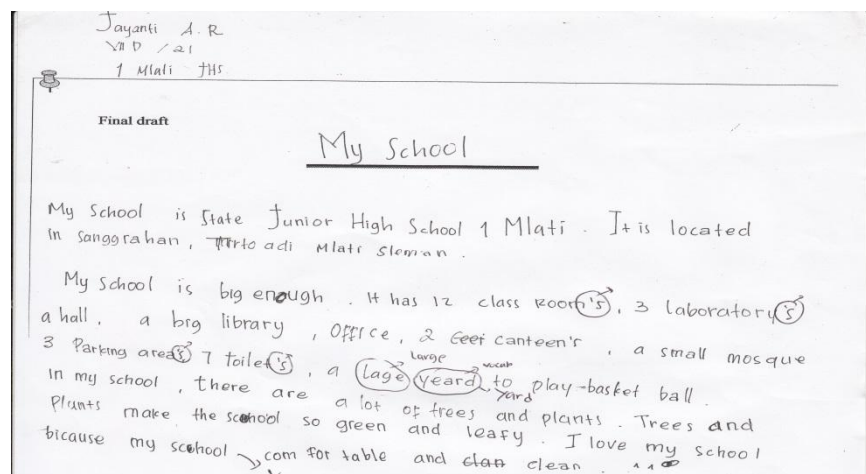 Jayanti A.R
VII D / 21
1 Mlati JHS
Final draft
My School
My School is State Junior High School 1 Mlati. It is located
in Sanggrahan, Tirto adi Mlati Sleman.
My School is big enough. It has 12 class room's, 3 laboratory's
a hall, a big library, Office, 2 canteen's, a small mosque
3 Parking area's 7 toilet's, a lage yeard to play-basket ball.
large vocab
yard
In my school, there are a lot of trees and plants. Trees and
Plants make the school so green and leafy. I love my school
bicause my scehool com for table and clan clean.